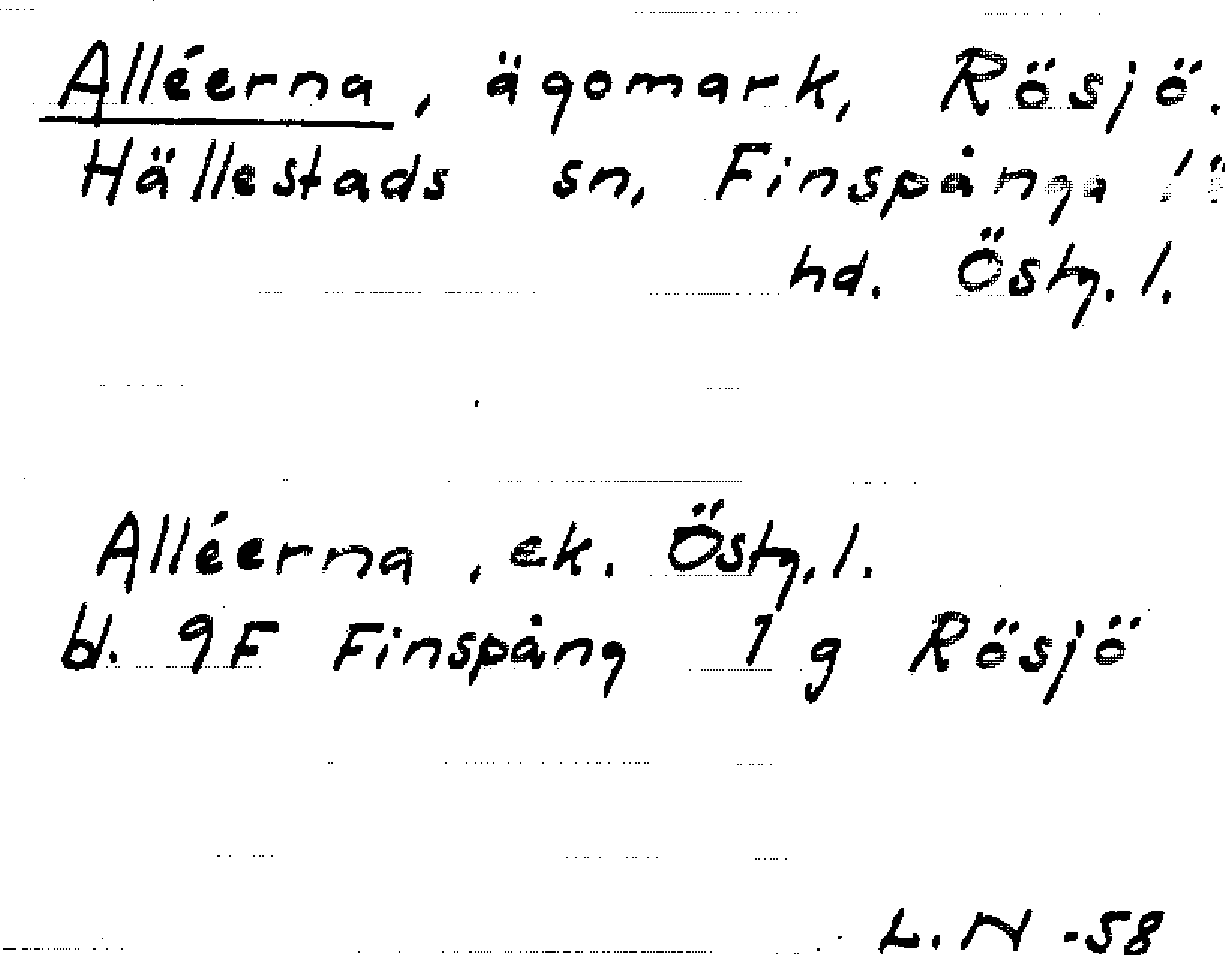 Alléerna, ägomark, Rösjö.
Hällestads sn, Finspånga l
hd. Östg. l.
Alléerna, ek. Östg. l.
bl. 9F Finspång 1 g Rösjö
L. N -58